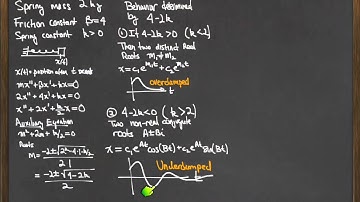 Spring mass 2 kg
Friction constant β=4
Spring constant k>0
x(t)
x(t)= position from t second
mx"+βx'+kx=0
2x"+4x'+kx=0
x"+2x'+k/2 x=0
Auxiliary Equation
m²+2m+k/2=0
Roots
M= -2±√(2²-4·1·k/2) / 2·1
= -2±√(4-2k) / 2
Behavior determined
by 4-2k
① If 4-2k>0 (k<2)
Then two distinct Real
Roots m₁≠m₂
x=c₁e^(m₁t)+c₂e^(m₂t)
overdamped
t
② 4-2k<0 (k>2)
Two non-real conjugate
roots A±Bi
x=c₁e^(At)cos(Bt)+c₂e^(At)sin(Bt)
Underdamped